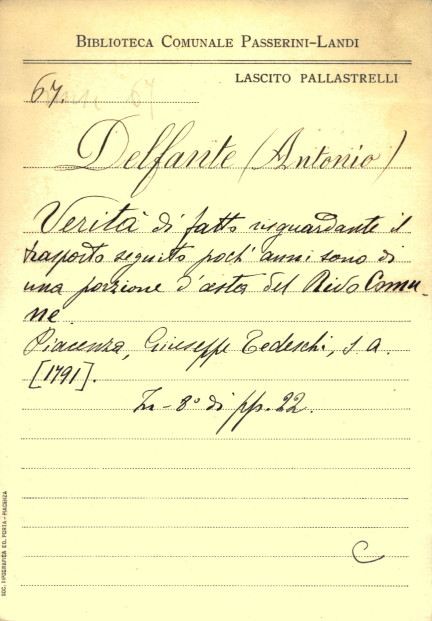 BIBLIOTECA COMUNALE PASSERINI-LANDI
LASCITO PALLASTRELLI
67.
Delfante (Antonio)
Verità di fatto risguardante il
trasporto seguito poch'anni sono di
una porzione d'asta del Rivo Comu-
ne.
Piacenza, Giuseppe Tedeschi, s a.
[1791].
In-8° di pp. 22.
C
SOC. TIPOGRAFICA ED. PORTA - PIACENZA